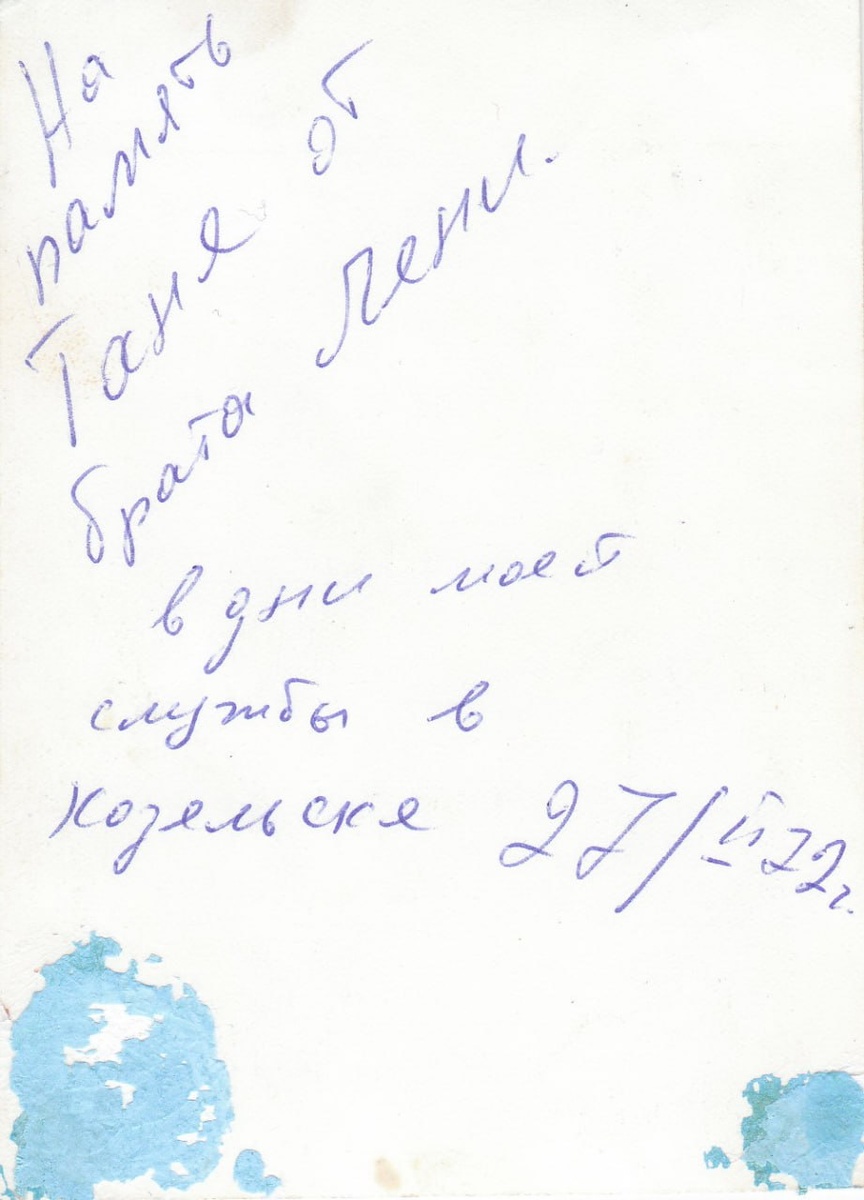 На
память
Таня от
брата Лени.
в дни моей
службы в
Козельске 27/II 72 г.